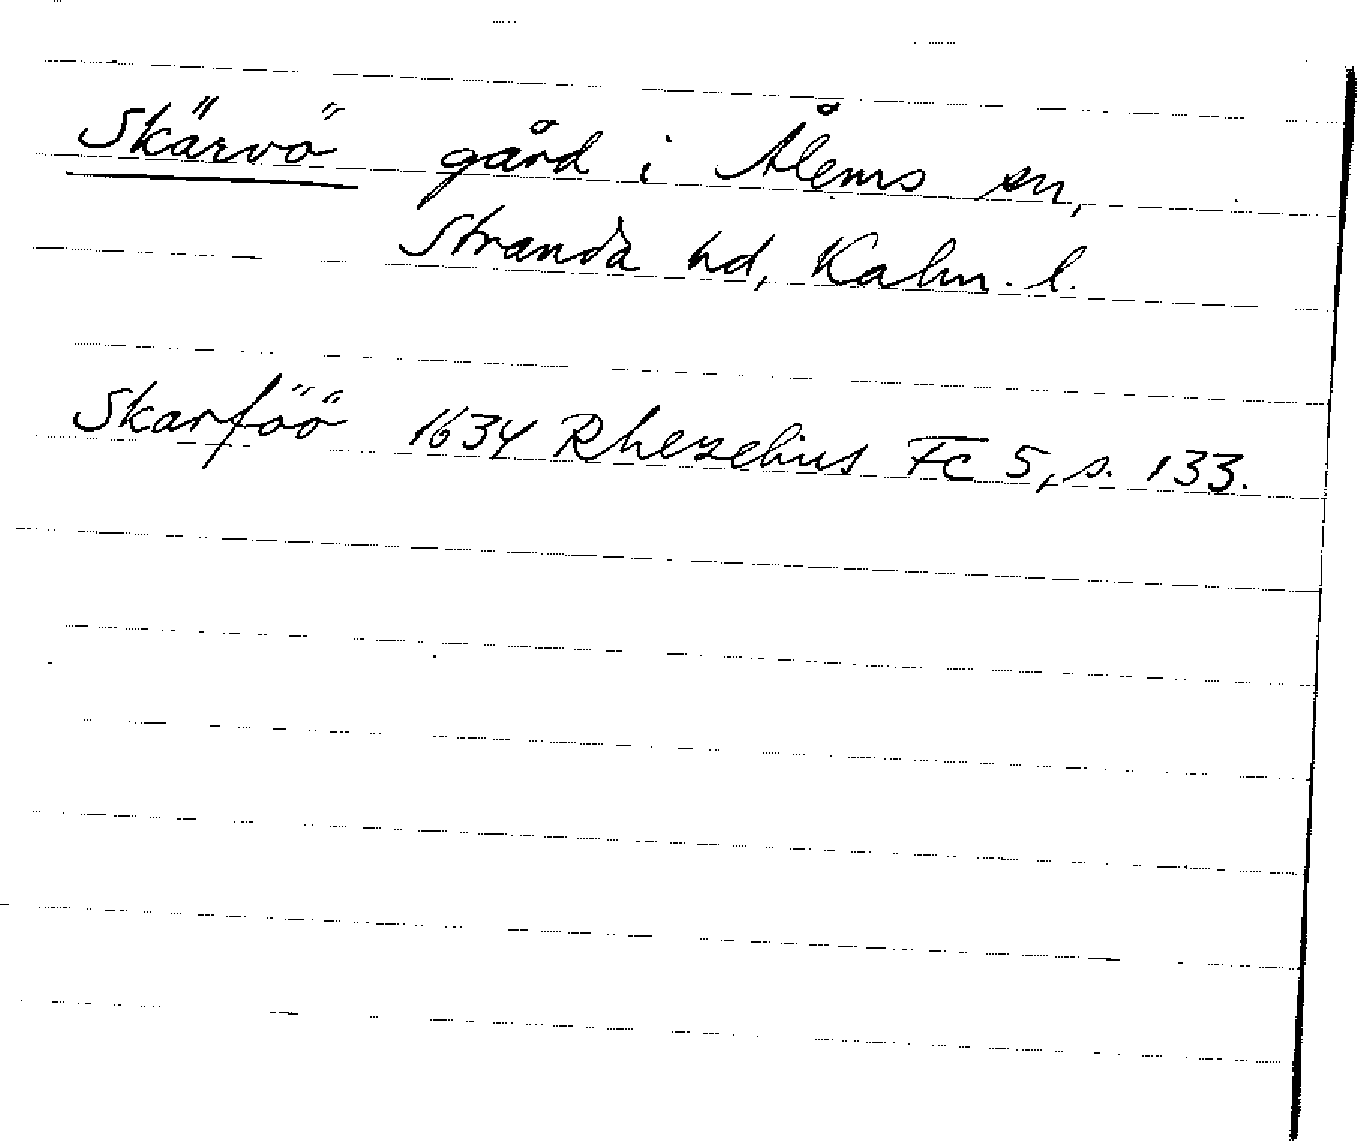 Skärvö gård i Ålems sn,
Stranda hd, Kalm. l.
Skarföö 1634 Rhezelius Fc 5, s. 133.